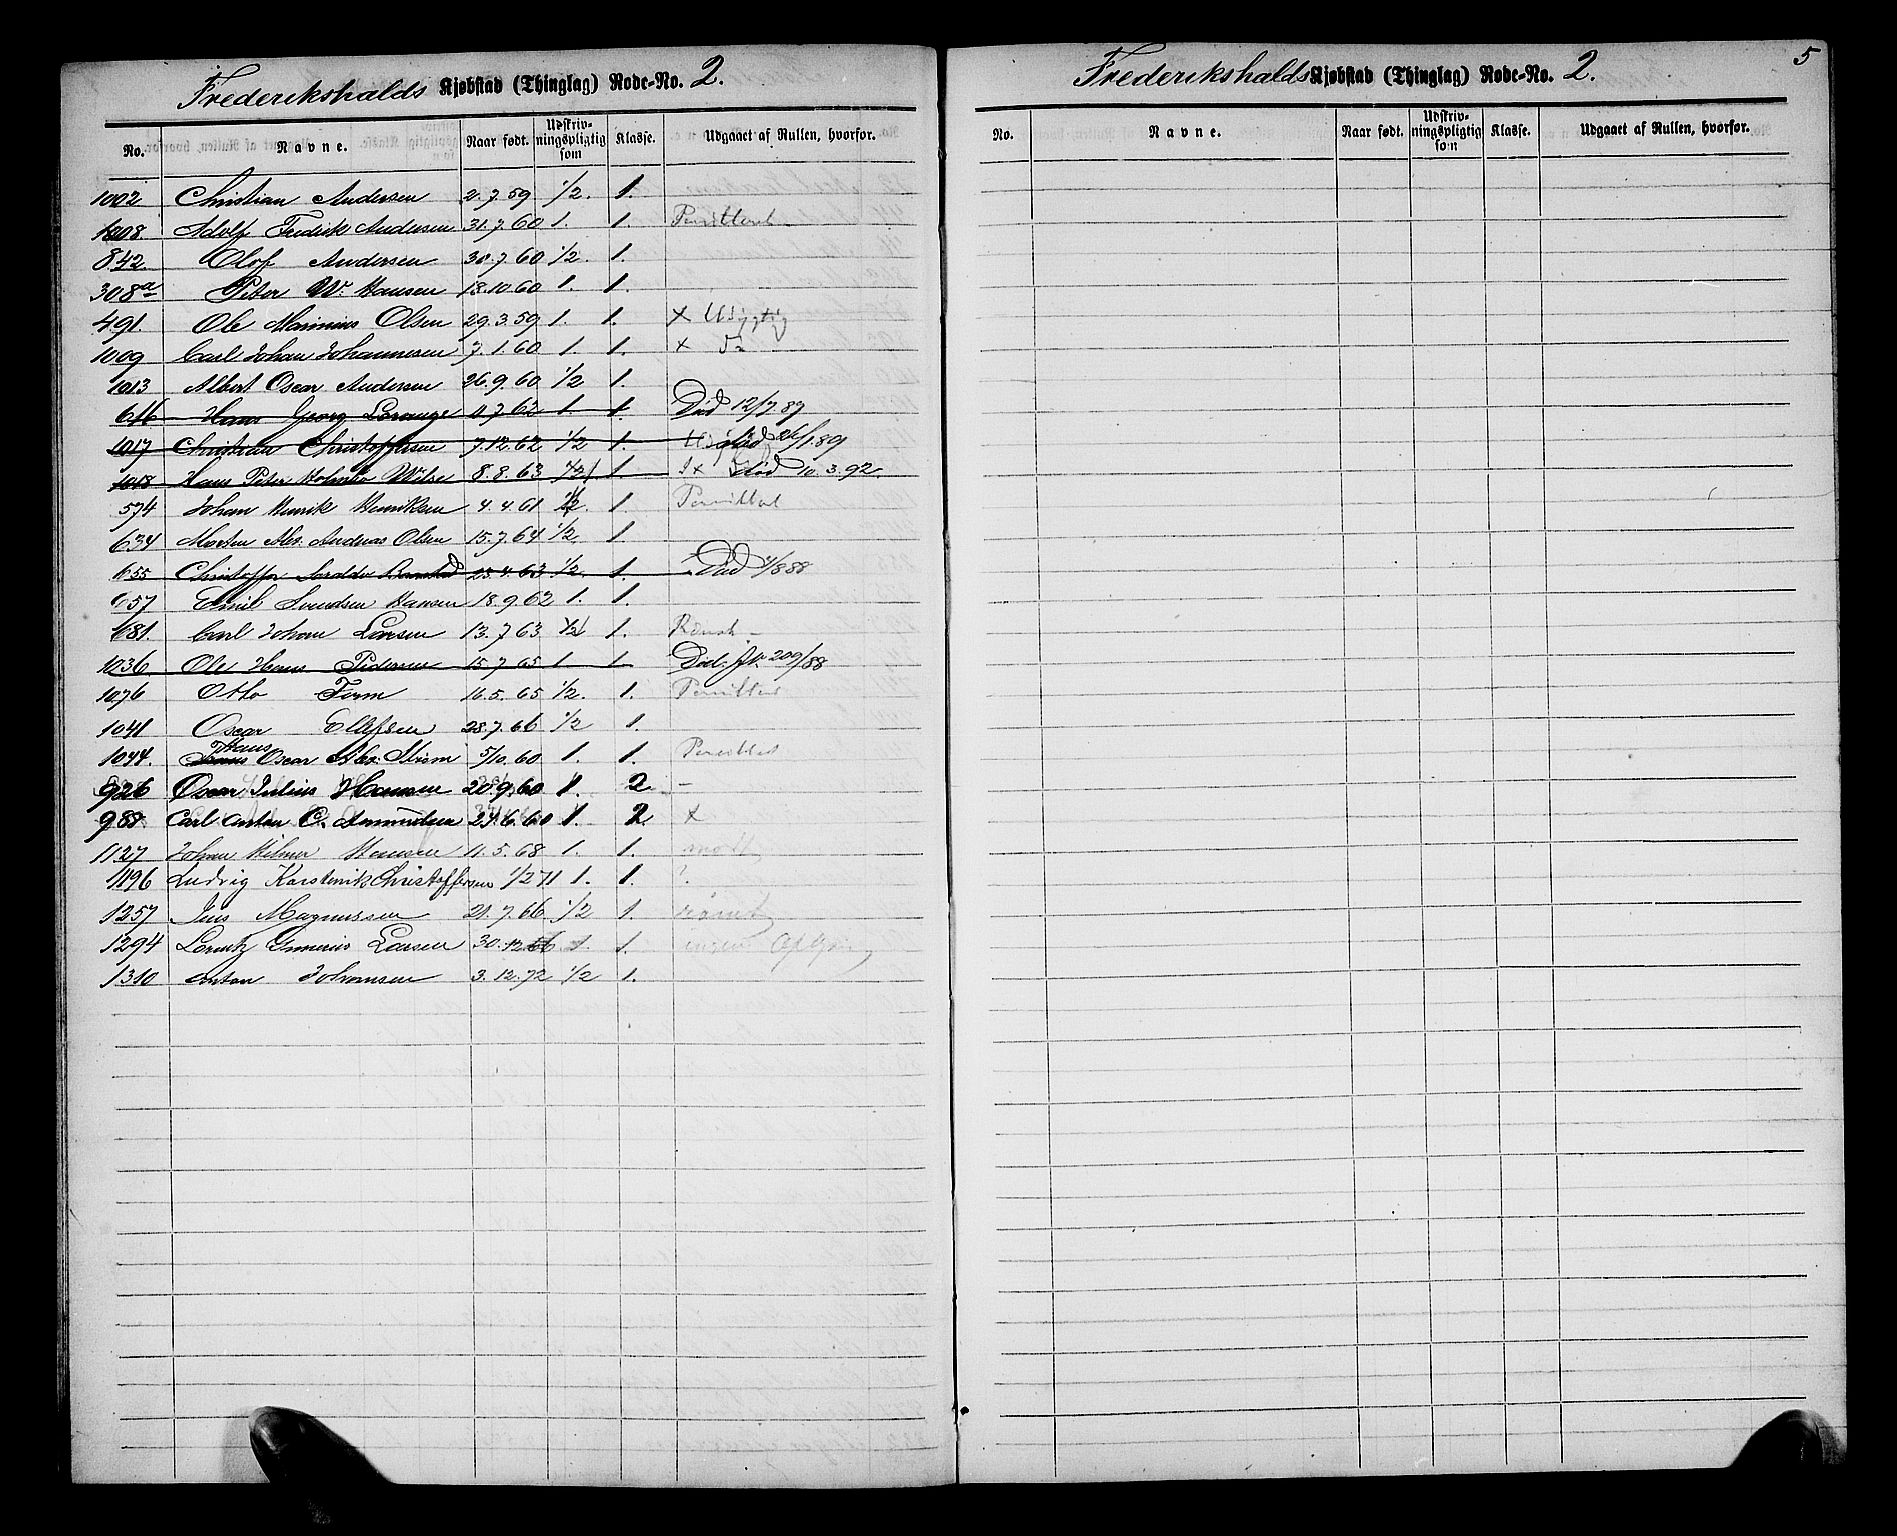 Frederikshalds Kjøbstad (Thinglag) Rode-No. 2.
No. Navne. Naar født. Udskrivningspligtig som Klasse. Udgaaet af Rullen, hvorfor.
1002 Christian Andersen 2.7.59 1/2. 1.
1008. Adolf Fredrik Andersen 31.7.60 1. 1.
842. Olof Andersen 30.7.60 1/2. 1.
308a Peter W. Hansen 18.10.60 1. 1.
491. Ole Marinius Olsen 29.3.59 1. 1. x Usygtig
1009 Carl Johan Johannesen 7.1.60 1. 1. x Do
1013 Albert Oscar Andersen 26.9.60 1/2 1.
646 Hans Georg Lorange 11.7.62 1 1 Død 12/7 87
1017 Christian Christoffersen 7.12.62 1/2 1. død 26/1 89
1018 Hans Peter Holmbo Wilse 8.8.63 1/2 1. død 10.3.92.
574 Johan Henrik Henriksen 4.4.61 1/2. 1
634 Morten Alex. Andreas Olsen 15.7.64 1/2. 1
655 Christoffer 23.4.63 1/2. 1. Død 4/8 88
657 Emil Svendsen Hansen 18.9.62 1. 1.
681. Carl Johan Larsen 13.7.63 1/2 1. Rømt –
1036. Ole Hans Pedersen 15.7.65 1 1 Død. Jr. 209/88
1076 Otto Form 16.5.65 1/2. 1.
1041 Oscar Ellefsen 28.7.66 1/2 1.
1044. Hans Oscar Alex. Strøm 5/10.60 1. 1.
926 Oscar Julius Hansen 20.9.60 1. 2. –
988 Carl Anton C. Asmundsen 24.6.60 1. 2. x
1127 Johan Hilmer Hansen 11.5.68 1. 1.
1196 Ludvig Karstenik Christoffersen 1/2 71 1. 1. ?
1257 Jens Magnussen 21.7.66 1/2 1. rømt
1294 Larsen 30.12.66 1. 1. ingen
1310 Anton Johansen 3.12.72 1/2 1.
Frederikshalds Kjøbstad (Thinglag) Rode-No. 2. 5
No. Navne. Naar født. Udskrivningspligtig som Klasse. Udgaaet af Rullen, hvorfor.